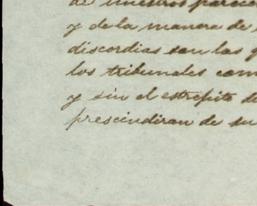 de nuestros
y de la manera de
discordias son las
los tribunales com
y sin el estrépito d
prescindiran de su